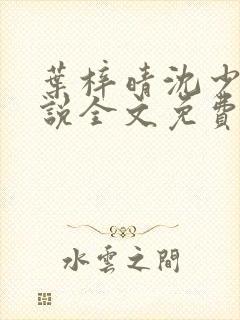 葉梓晴沈少
說全文免費
水雲之間